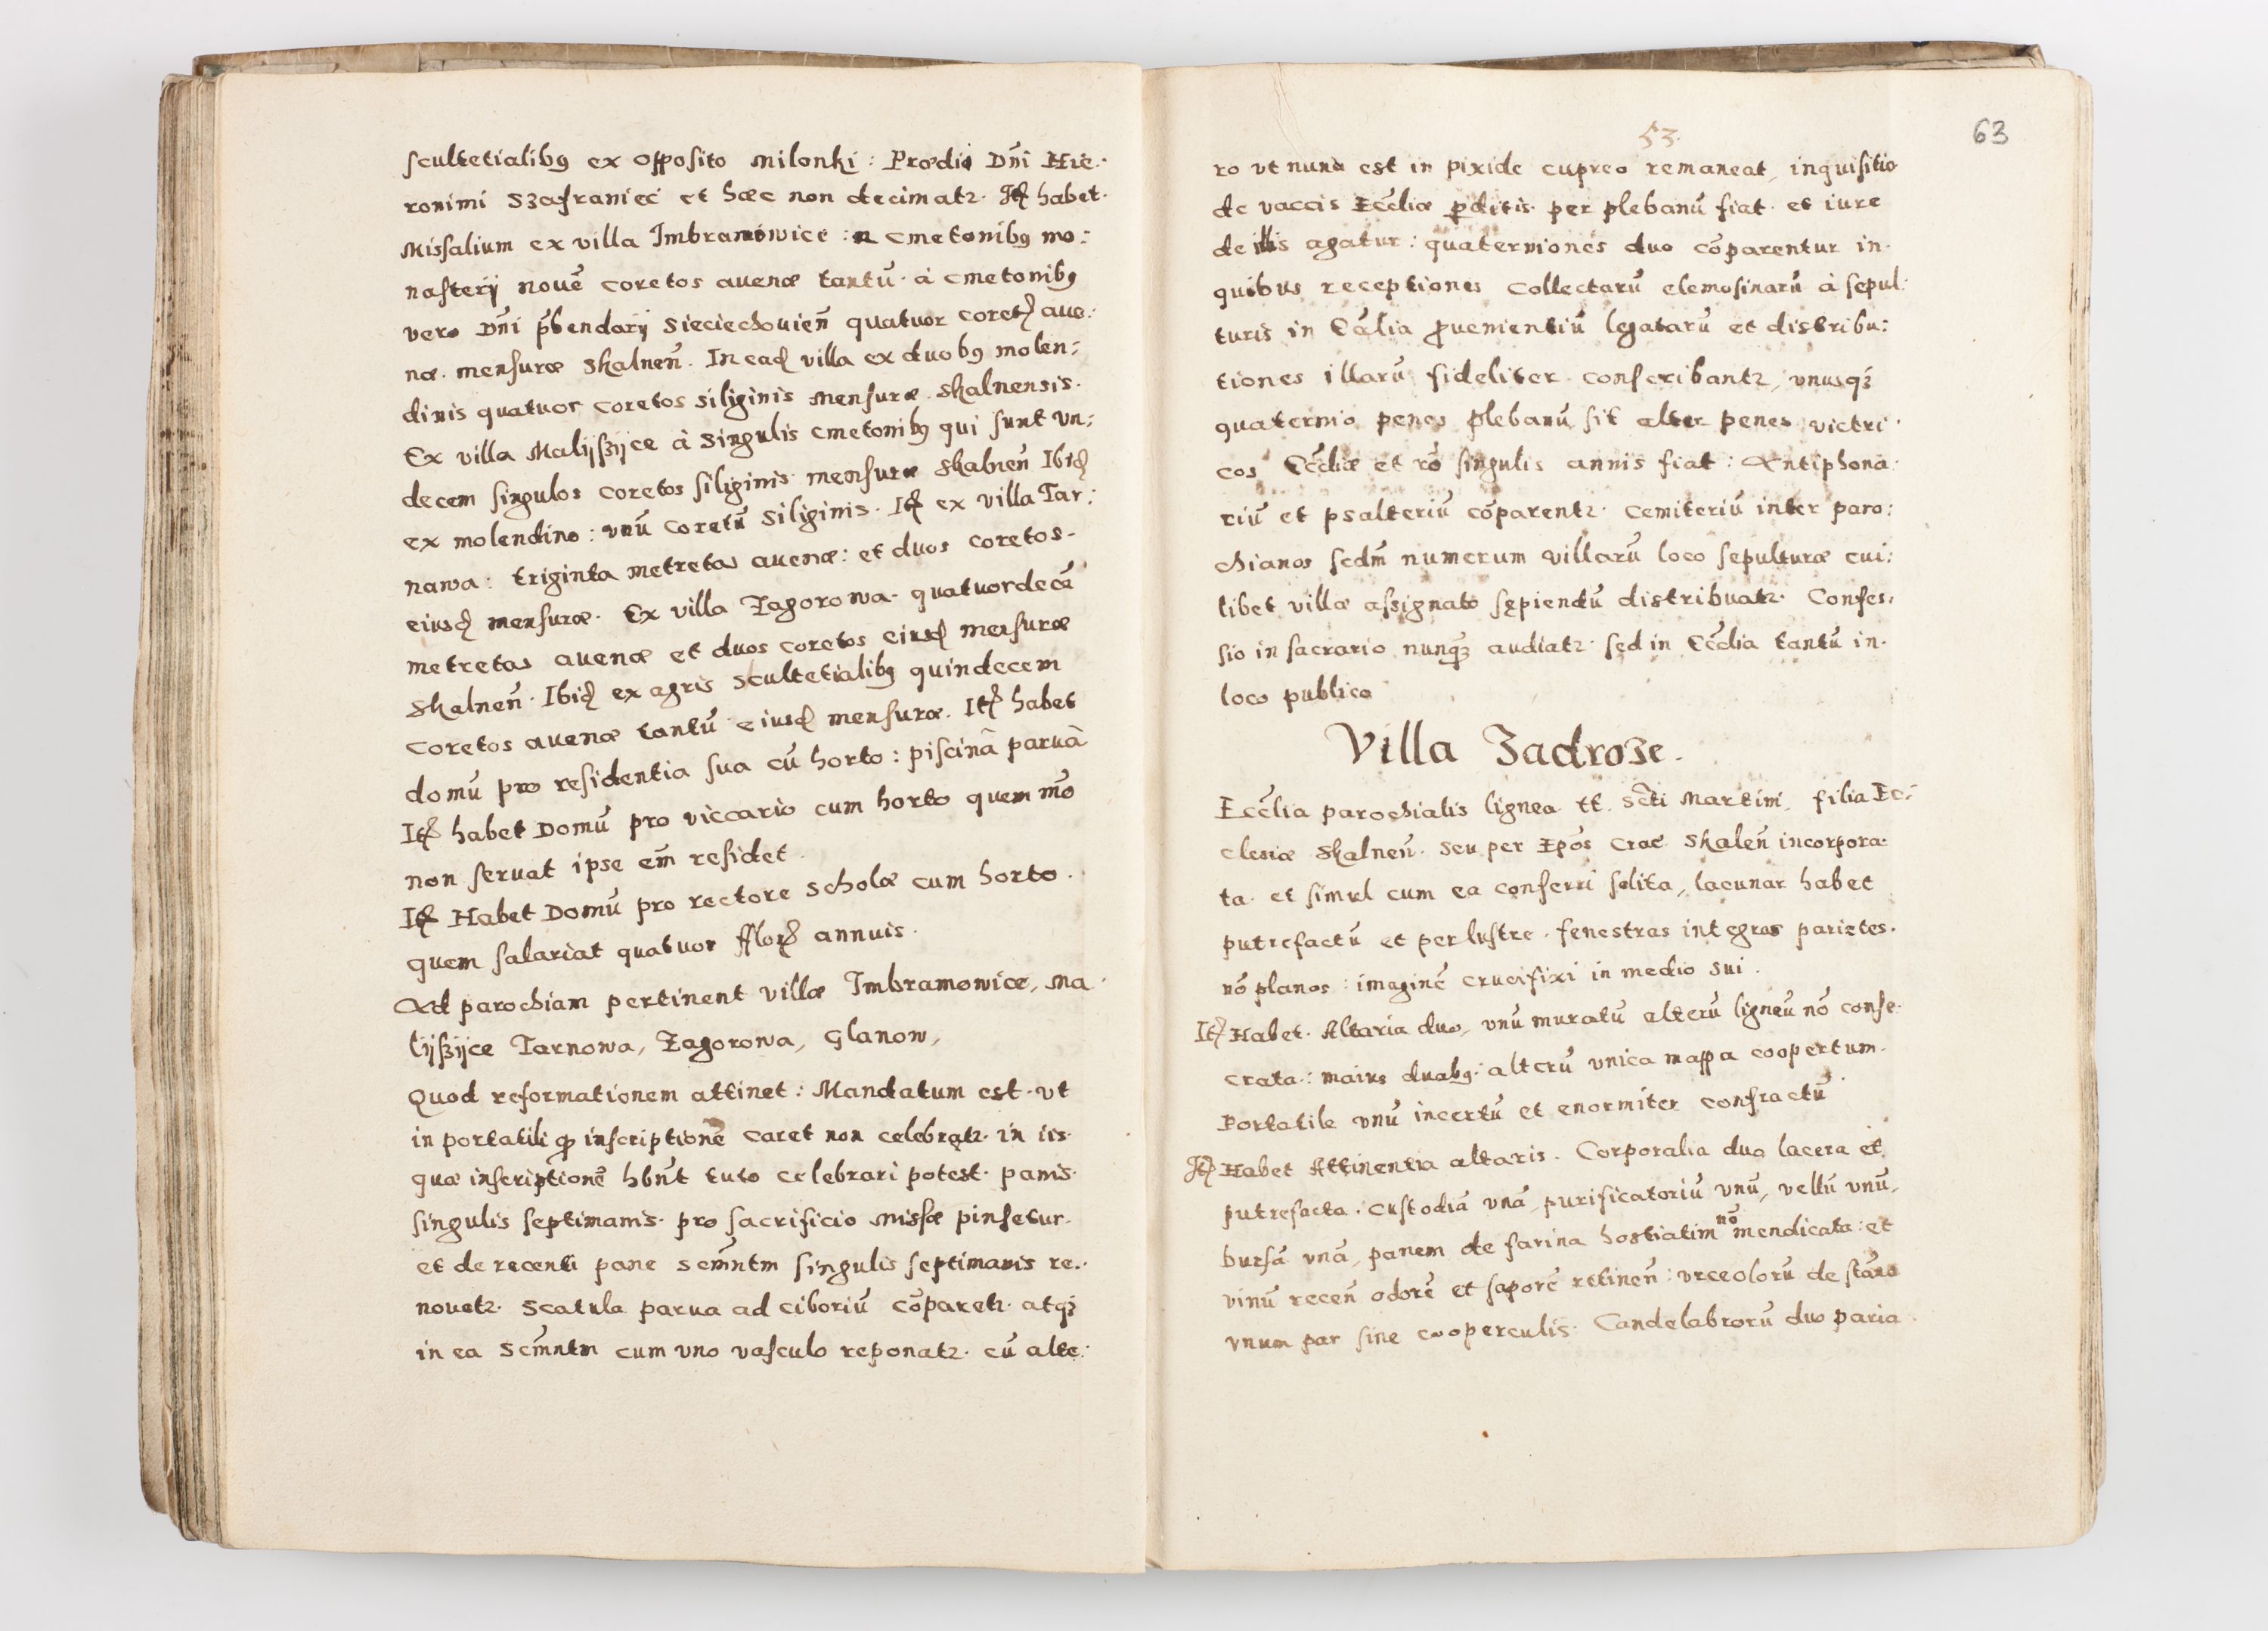 scultetialibꝰ ex opposito Milonki: Prædio Dn̄i Hie:
ronimi Szafraniec et hæc non decimatꝛ. Itꝫ habet.
Missalium ex villa Imbramowice: a cmetonibꝰ mo:
nasterij nouē coretos auenæ tantū. à cmetonibꝰ
vero Dn̄i p̄bendarij Sieciechouien̄ quatuor coretꝫ aue:
næ. mensuræ Skalnen̄. In eadꝫ villa ex duobꝰ molen:
dinis quatuor coretos siliginis mensuræ. Skalnensis.
Ex villa Malijszijce à singulis cmetonibꝰ qui sunt vn:
decem singulos coretos siliginis mensuræ Skalnen̄ Ibidꝫ
ex molendino: vnū coretū siliginis. Itꝫ ex villa Tar:
nawa: triginta metretas auenæ: et duos coretos.
eiusdꝫ mensuræ. Ex villa Zagorowa. quatuordecē
metretas auenæ et duos coretos eiusdꝫ mensuræ
Skalnen̄. Ibidꝫ ex agris scultetialibꝰ quindecem
coretos auenæ tantū eiusdꝫ mensuræ. Itꝫ habet
domū pro residentia sua cū horto: piscinā paruā
Itꝫ habet Domū pro viccario cum horto quem mō
non seruat ipse em̄ residet.
Itꝫ Habet Domū pro rectore scholæ cum horto.
quem salariat quatuor fflorꝫ annuis.
Ad parochiam pertinent villæ Imbramowice, Ma
lijszijce Tarnowa, Zagorowa, Glanow,
Quod reformationem attinet: Mandatum est. vt
in portatili ꝙ inscriptionē caret non celebrętꝛ. in iis.
quæ inscriptionē hbn̄t tuto celebrari potest. panis.
singulis septimanis. pro sacrificio missæ pinsetur.
et de recenti pane scm̄ntm singulis septimanis re:
nouetꝛ. Scatula parua ad ciboriū cōparetꝛ. atqꝫ
in ea Scm̄ntm cum vno vasculo reponatꝛ. cū alte:
53.
63
ro vt nunc est in pixide cupreo remaneat, inquisitio
de vaccis Eccl̄iæ ꝑditis. per plebanū fiat. et iure
de illis agatur: quaterniones duo cōparentur in.
quibus receptiones collectarū elemosinarū à sepul:
turis in Eccl̄ia ꝓuenientiū legatarū et distribu:
tiones illarū fideliter. conscribantꝛ, vnusqꝫ
quaternio penes plebanū sit alter penes victri
cos Eccl̄iæ et rō singulis annis fiat: Antiphona:
riū et psalteriū cōparentꝛ. Cemiteriū inter paro:
chianos scdm̄ numerum villarū loco sepulturæ cui:
libet villæ assignato sępiendū distribuatꝛ. Confes:
sio in sacrario nunqꝫ audiatꝛ. sed in Eccl̄ia tantū in.
loco publico
Villa Zadroze.
Eccl̄ia parochialis lignea tt. Scti Martini, filia Ec:
clesiæ Skalnen̄. seu per Epos̄ Crac̄ Skalen̄ incorpora:
ta. et simul cum ea conferri solita, lacunar habet
putrefactū et perlustre. fenestras integras parietes.
nō planos: imaginē crucifixi in medio sui.
Itꝫ Habet. Altaria duo, vnū muratū alterū ligneū nō conse:
crata.: maius duabꝰ: alterū vnica mappa coopertum.
Portatile vnū incertū et enormiter confractū
Itꝫ Habet Attinentia altaris. Corporalia duo lacera et
putrefacta. custodiā vnā, purificatoriū vnū, vellū vnū,
bursā vnā, panem de farina hostiatim nō mendicata: et
vinū recen̄ odorē et saporē retinen̄: vrceolorū de stāno
vnum par sine cooperculis. Candelabrorū duo paria.